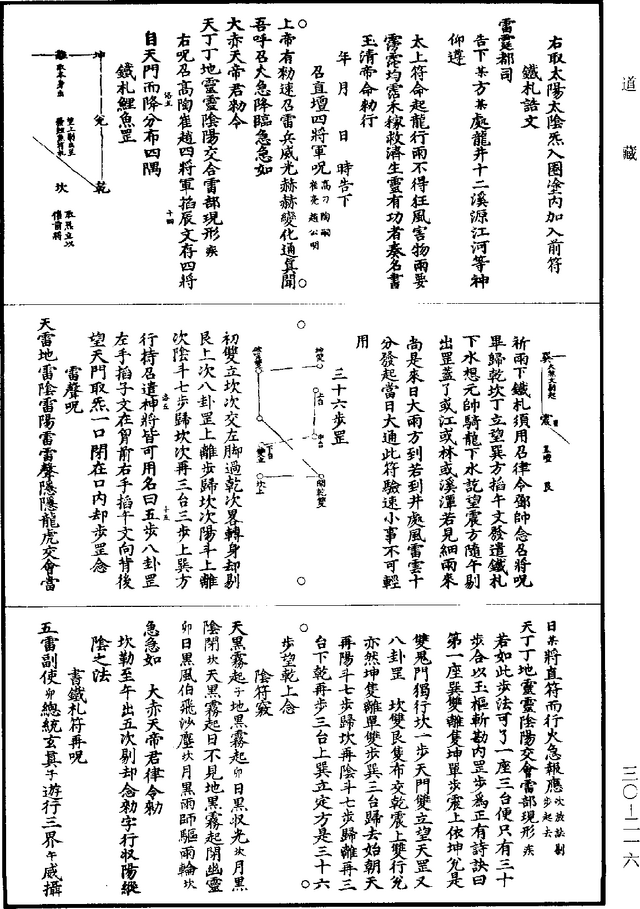 道藏
右取太陽太陰炁入圈塗内加入前符
鐵札誥文
雷霆都司
告下某方某處龍井十二溪源江河等神
仰遵
太上符命起龍行雨不得狂風害物兩要
霶霈均霑禾稼救濟生靈有功者奏名書
玉清帝命勅行
年月日時告下
召直壇四將軍呪高刁陶嗣崔亮趙公明
上帝有勅速召雷兵威光赫赫變化通真聞
吾呼召火急降臨急急如
大赤天帝君勅令
天丁丁地靈靈陰陽交合雷部現形疾
右呪召高陶崔趙四將軍掐辰文存四將
自天門而降分布四隅
鐵札鯉魚罡
坤 兌 乾
離 坎
巽 震 艮
祈雨下鐵札須用召律令鄧帥念召將呪
畢歸乾坎丁立望巽方掐午文發遣鐵札
下水想元帥騎龍下水訖望震方隨午剔
出罡蓋了或江或林或溪潭若見細雨來
尚是來日大雨方到若到井處風雷雲十
分發起當日大通此符驗速小事不可輕
用
三十六步罡
初雙立坎次交左脚過乾次畧轉身却剔
艮上次八卦罡上離步歸坎次陽斗上離
次陰斗七步歸坎次再三台三步上巽方
行持召遣神將皆可用名曰五步八卦罡
左手掐子文在胷前右手掐午文向背後
望天門取炁一口閉在口内却步罡念
雷聲呪
天雷地雷陰雷陽雷雷聲隱隱龍虎交會當
日某將直符而行火急報應次放訣剔步起去
天丁丁地靈靈陰陽交會雷部現形疾
若如此步法可了一座三台便只有三十
步合以玉樞斬勘内罡步爲正有詩訣曰
第一座巽雙離隻坤單步震上依坤兌是
雙鬼門獨行坎一步天門雙立望天罡又
八卦罡 坎雙艮隻布交乾震上雙行兌
亦然坤隻離單雙步巽三台歸去始朝天
再陽斗七步歸坎再陰斗七步歸離再三
台下乾再步三台上巽立定方是三十六
步望乾上念
陰符竅
天黑霧起子地黑霧起卯日黑収光坎月黑
陰閉坎天黑霧起日不見地黑霧起閉幽靈
卯日黑風伯飛沙塵坎月黑雨師驅雨輪坎
急急如 大赤天帝君律令勅
坎勒至午出五次剔却念勅字行収陽縱
陰之法
書鐵札符再呪
五雷副使卯總統玄冥子遊行三界午威攝
三〇-一一六